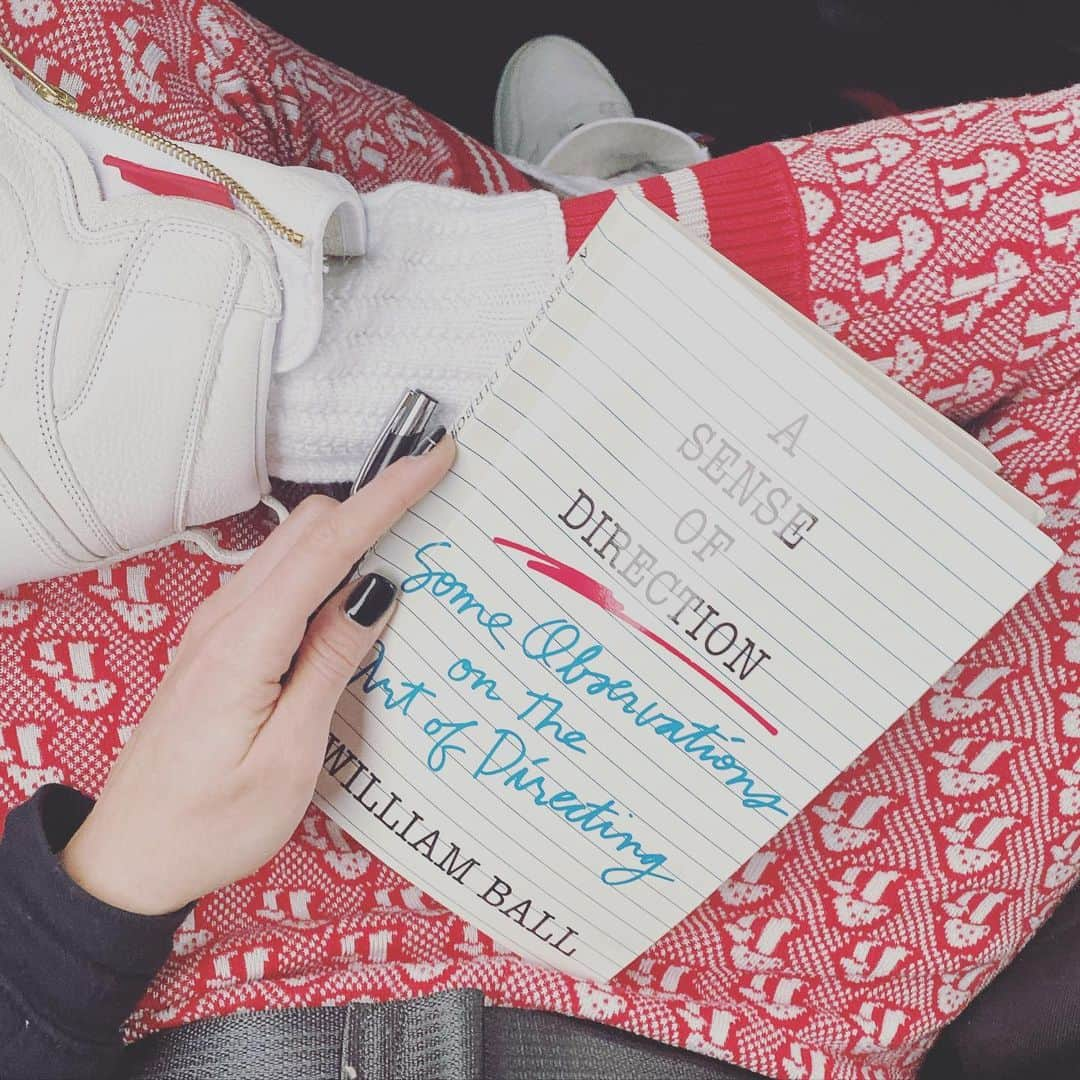 A
SENSE
OF
DIRECTION
Some Observations
on the
Art of Directing
WILLIAM BALL